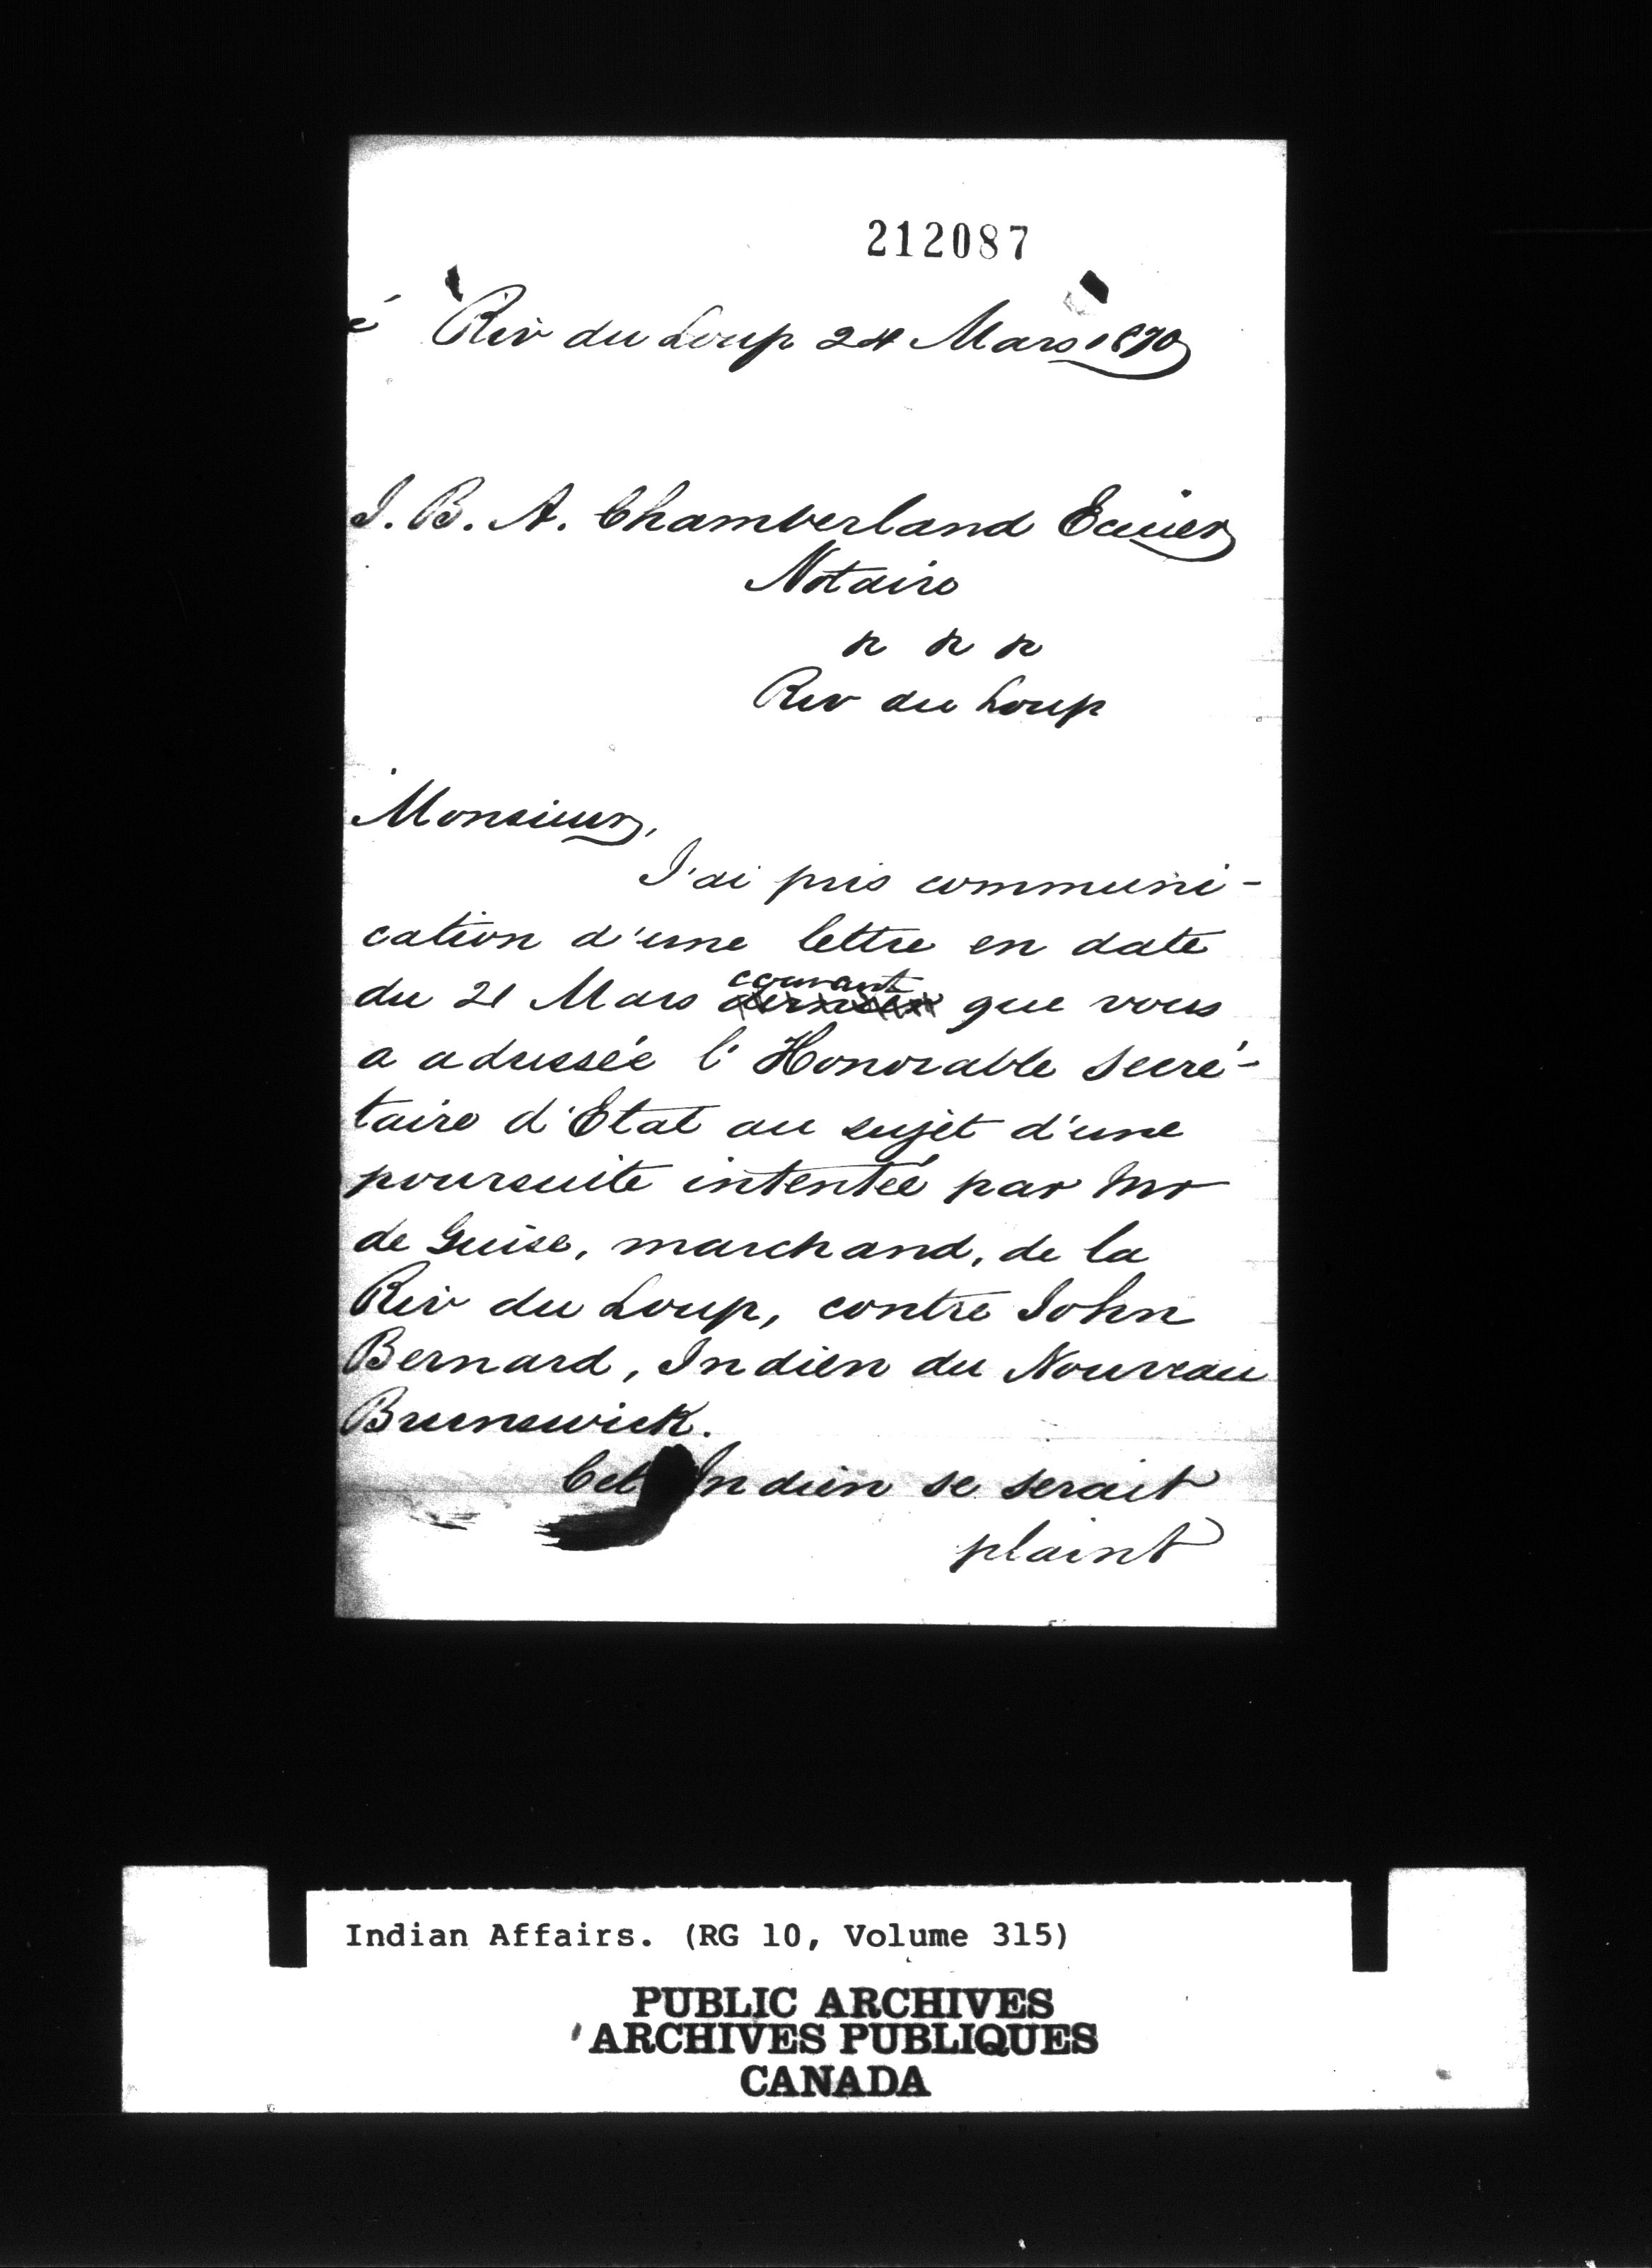 212087
é Riv du Loup 24 Mars 1870
J. B. A. Chamberland Ecuier
Notaire
" " "
Riv du Loup
Monsieur,
J'ai pris communi-
cation d'une lettre en date
courant
du 21 Mars dernier que vous
a adressée l'Honorable Secré-
taire d'Etat au sujet d'une
poursuite intentée par Mr
de Guise, marchand, de la
Riv du Loup, contre John
Bernard, Indien du Nouveau
Brunswick.
Cet Indien se serait
plaint
Indian Affairs. (RG 10, Volume 315)
PUBLIC ARCHIVES
ARCHIVES PUBLIQUES
CANADA